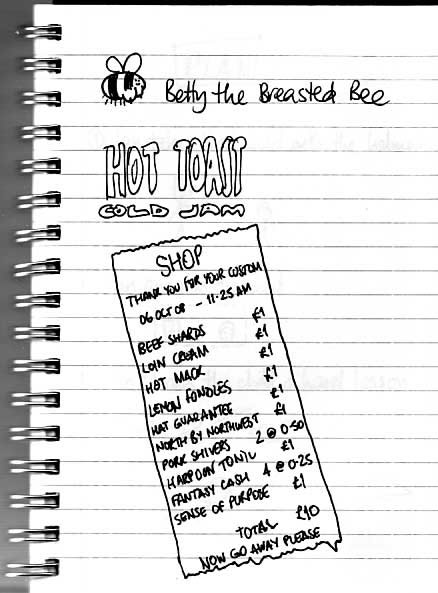 Betty the Breasted Bee
HOT TOAST
COLD JAM
SHOP
THANK YOU FOR YOUR CUSTOM
06 OCT 08 - 11:25 AM
BEEF SHARDS £1
LOIN CREAM £1
HOT MACK £1
LEMON FONDLES £1
HAT GUARANTEE £1
NORTH BY NORTHWEST £1
PORK SHIVERS 2 @ 0.50
HARPOON TONIC £1
FANTASY CASH 4 @ 0.25
SENSE OF PURPOSE £1
TOTAL £10
NOW GO AWAY PLEASE